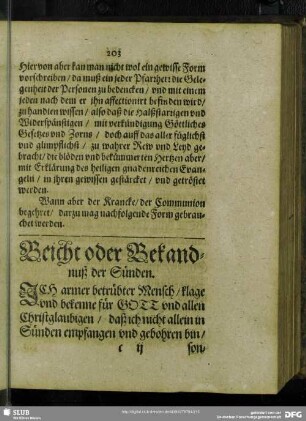 203
Hiervon aber kan man nicht wol ein gewisse Form
vorschreiben / da muß ein jeder Pfarrherr die Gele-
genheit der Personen zu bedencken / vnd mit einem
jeden nach dem er ihn affectionirt befinden wird /
zu handlen wissen / also daß die Halßstarrigen vnd
Widerspänstigen / mit verkündigung Göttliches
Gesetzes vnd Zorns / doch auff das aller füglichst
vnd glimpflichst / zu wahrer Rew vnd Leyd ge-
bracht / die blöden vnd bekümmerten Hertzen aber /
mit Erklärung des heiligen gnadenreichen Evan-
geln / in ihren gewissen gestärcket / vnd getröstet
werden.
Wann aber der Krancke / der Communion
begehret / darzu mag nachfolgende Form gebrau-
chet werden.
Beicht oder Bekand-
nuß der Sünden.
ICH armer betrübter Mensch / klage
vnd bekenne für GOTT vnd allen
Christglaubigen / daß ich nicht allein in
Sünden empfangen vnd gebohren bin /
c ij
son-
SLUB
DFG